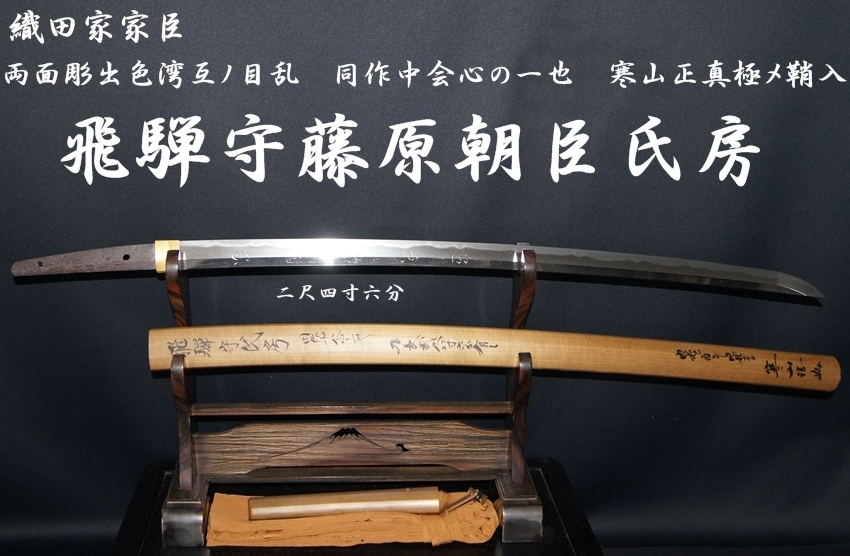 織田家家臣
両面彫出色湾互ノ目乱　同作中会心の一也　寒山正真極メ鞘入
飛騨守藤原朝臣氏房
二尺四寸六分
飛騨守氏房